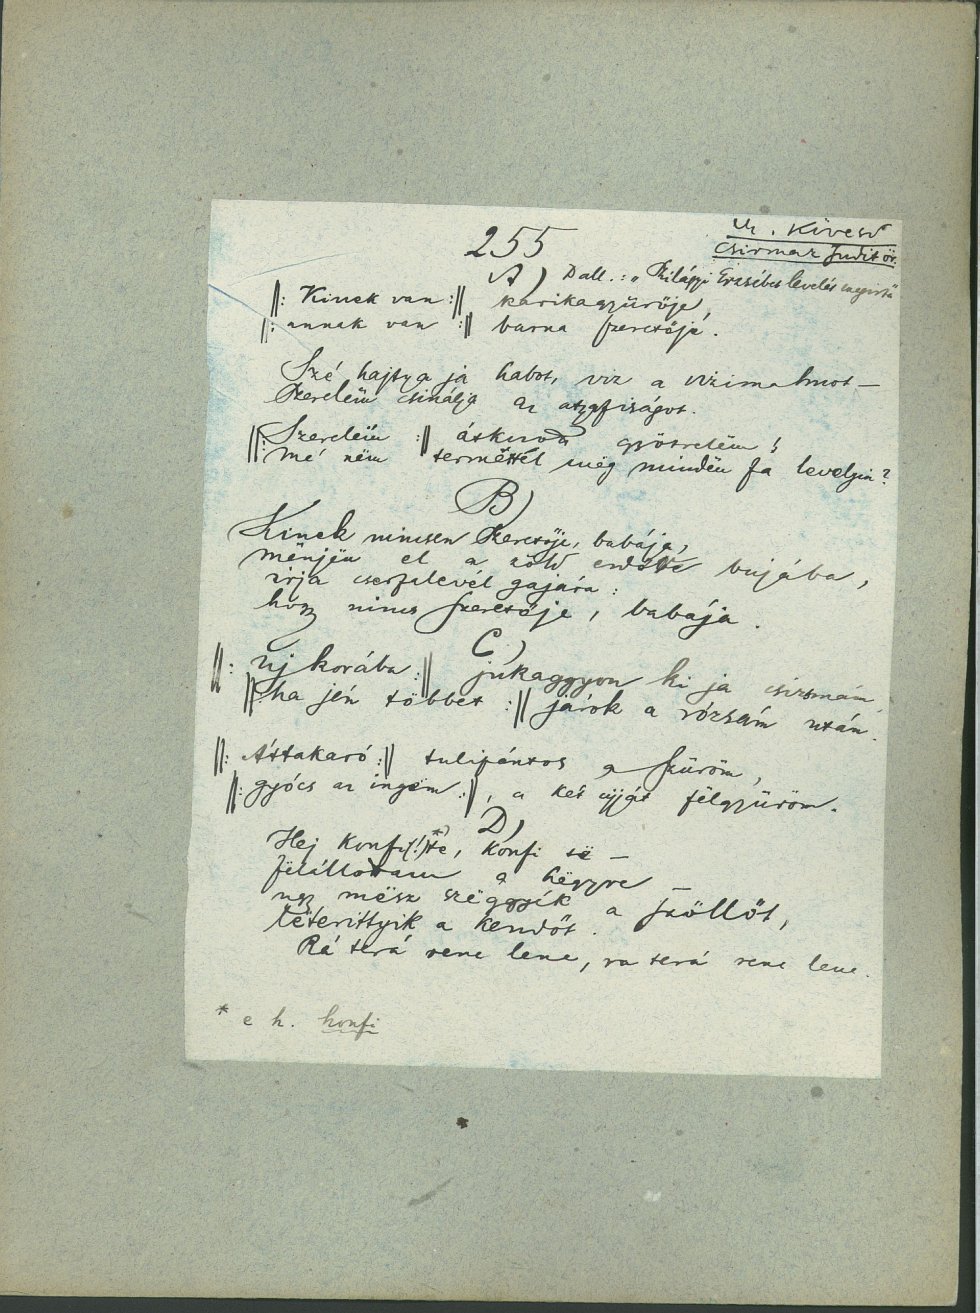 255
M. Kövesd
Csirmaz Judit ör.
A) Dall.: „Szilágyi Erzsébet levelét megirta"
||: Kinek van :|| karikagyürüje,
||: annak van :|| barna szeretője.
Szé hajtya ja habot, viz a vizimalmot —
Szerelëm csinálja az
||: Szerelëm :|| átkozott gyötrelëm!
||: Mé nëm terméttél mëg mindën fa levelyin?
B)
Kinek nincsen szeretője, babája,
mënjën el a zöld erdőbe bujába,
irja cserfalevél gajára:
hogy nincs szeretője, babája.
C.)
||: Uj korába :|| jukaggyon ki ja csizmám,
||: ha jén többet :|| járok a rózsám után.
||: Áttakaró :|| tulipántos a szüröm,
||: gyócs az ingëm :||, a két ujját fëlgyüröm.
D)
Hej Konfi(!)*) te, Konfi të —
fëlállottam a hëgyre —
ugy mész szëggyík a szőllőt,
lëteríttyik a kendőt.
Rá terá rene lene, ra terá rene lene.
* e h. honfi